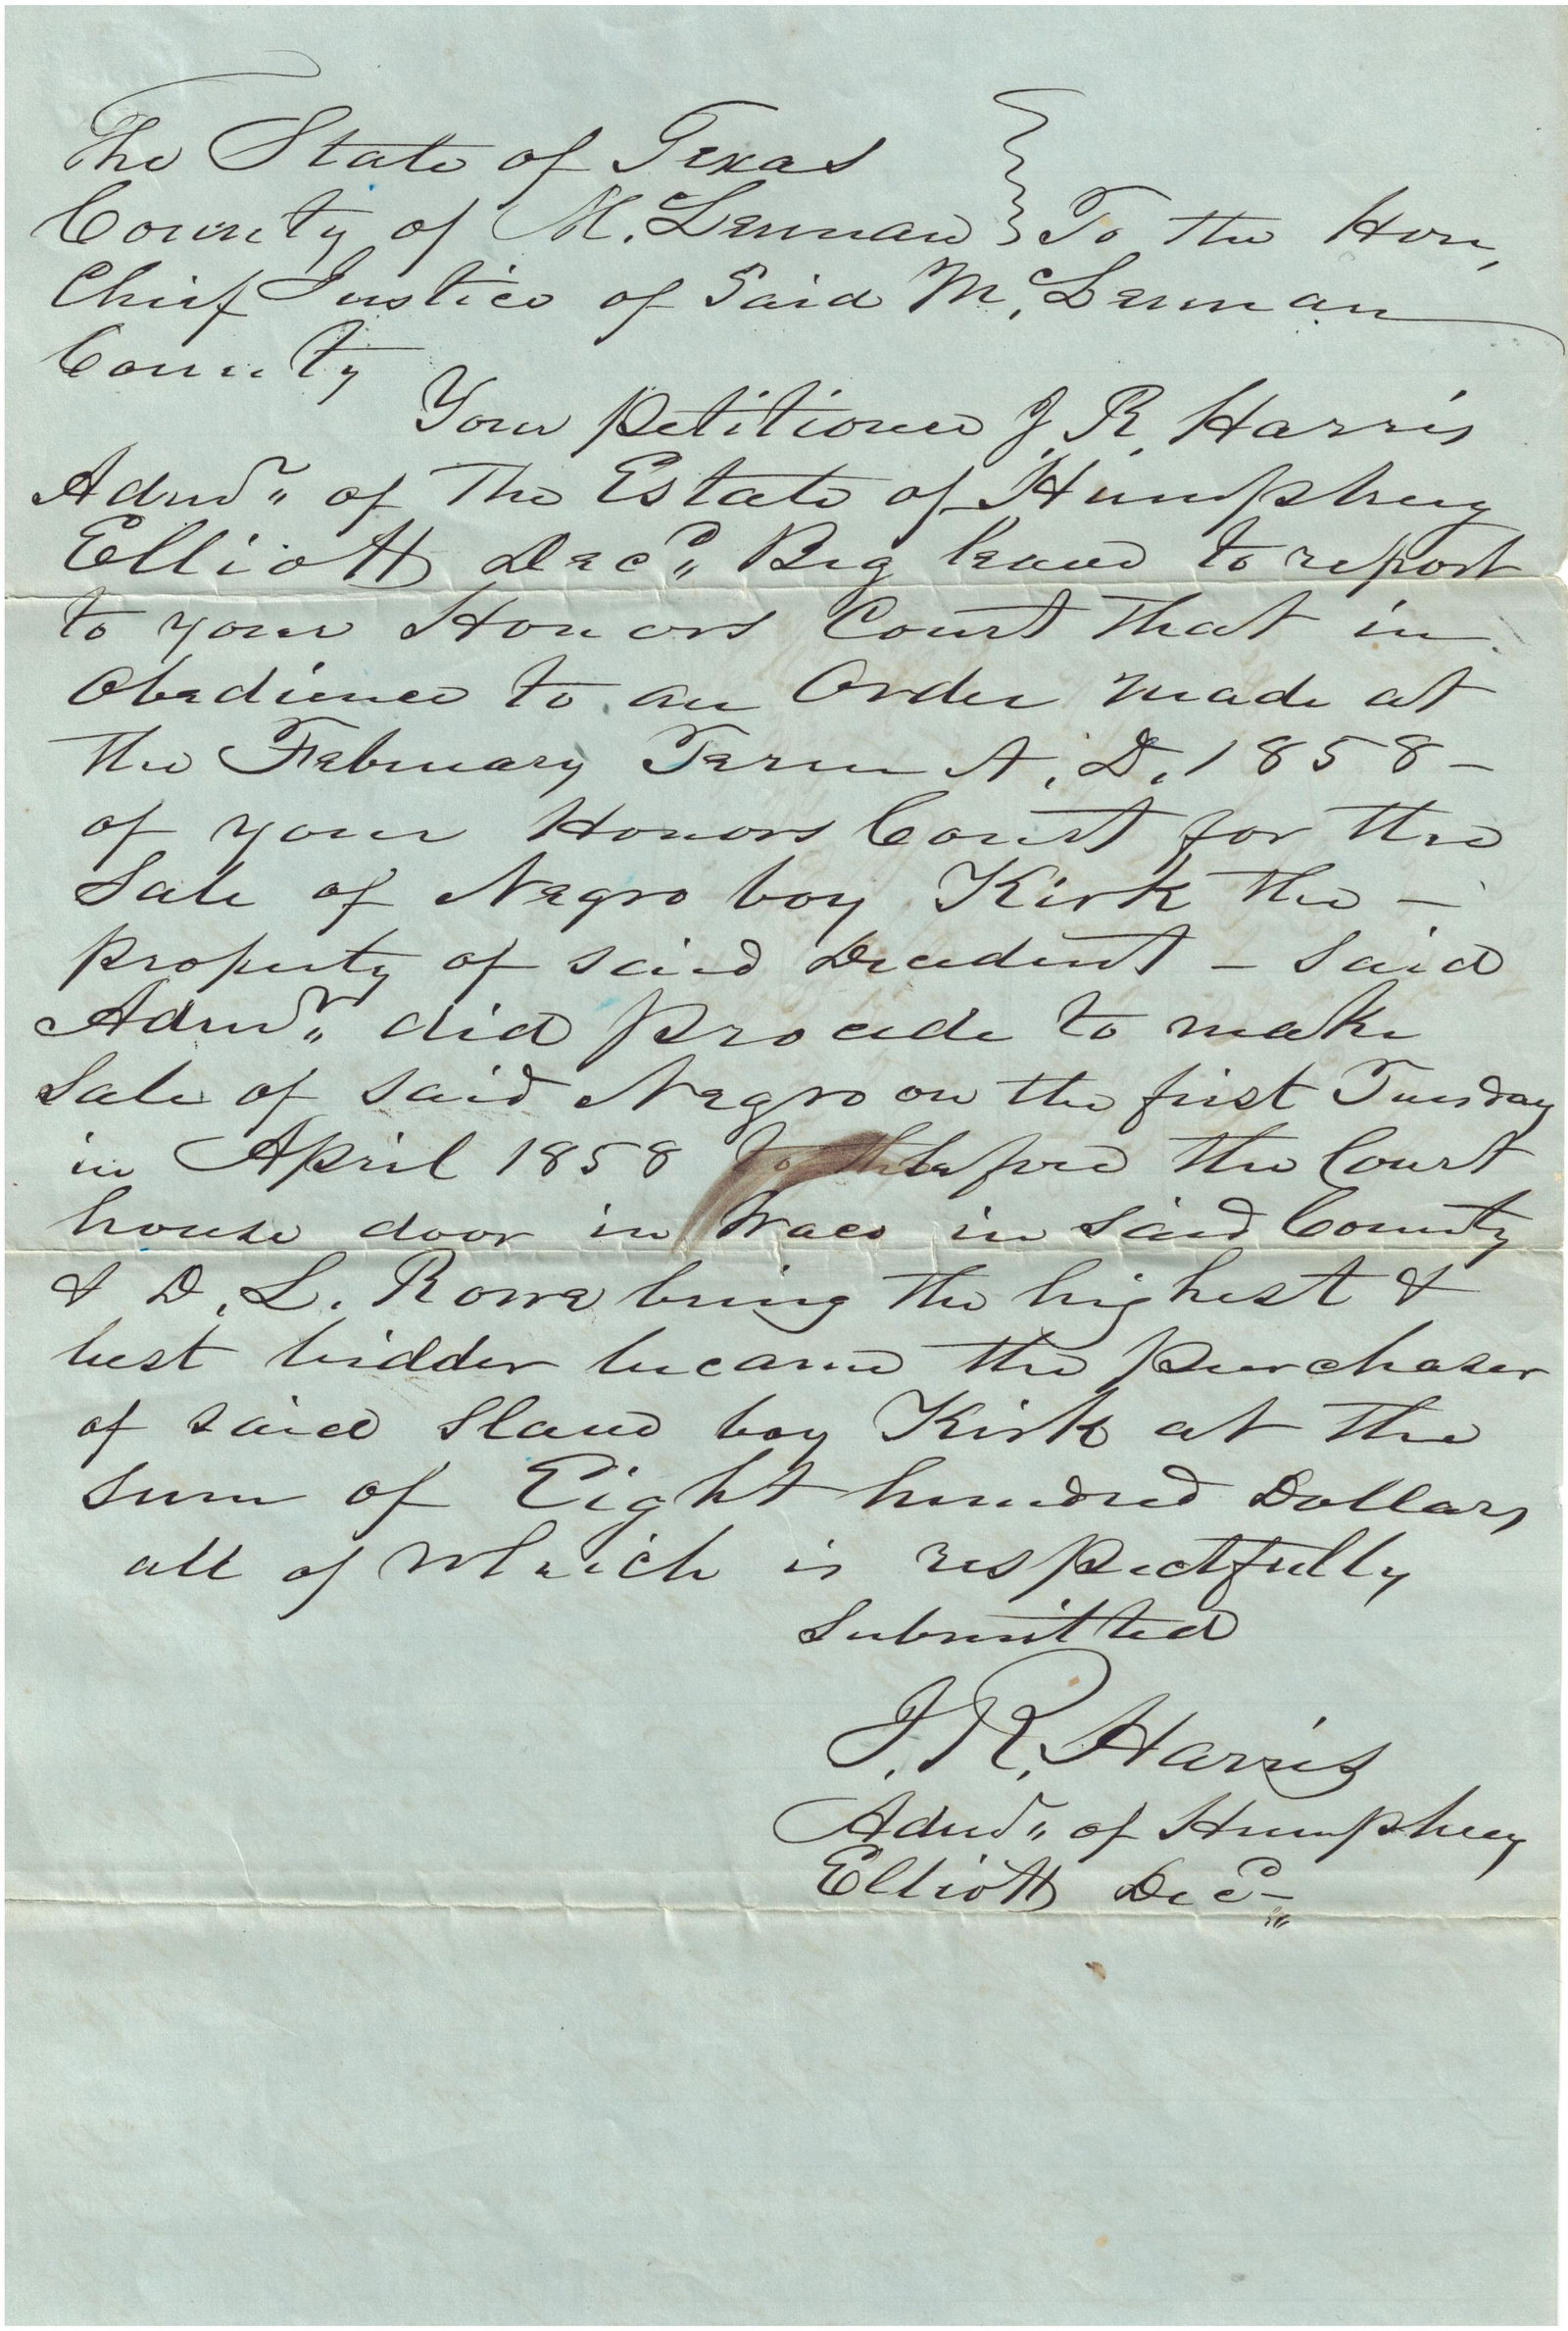 The State of Texas
County of McLennan } To the Hon,
Chief Justice of Said McLennan
County
Your petitioner J. R. Harris
Admr" of The Estate of Humphrey
Elliott Decd" Beg leave to report
to your Honors Court That in
obedience to an Order made at
the February Term A. D. 1858 –
of your Honors Court for the
Sale of Negro boy Kirk the –
property of said Decedent – said
Admr" did procede to make
Sale of said Negro on the first Tuesday
in April 1858 before the Court
house door in Waco in said County
& D. L. Rowe being the highest &
best bidder became the purchaser
of said Slave boy Kirk at the
sum of Eight hundred Dollars,
all of which is respectfully
submitted
J. R. Harris
Admr" of Humphrey
Elliott Decd